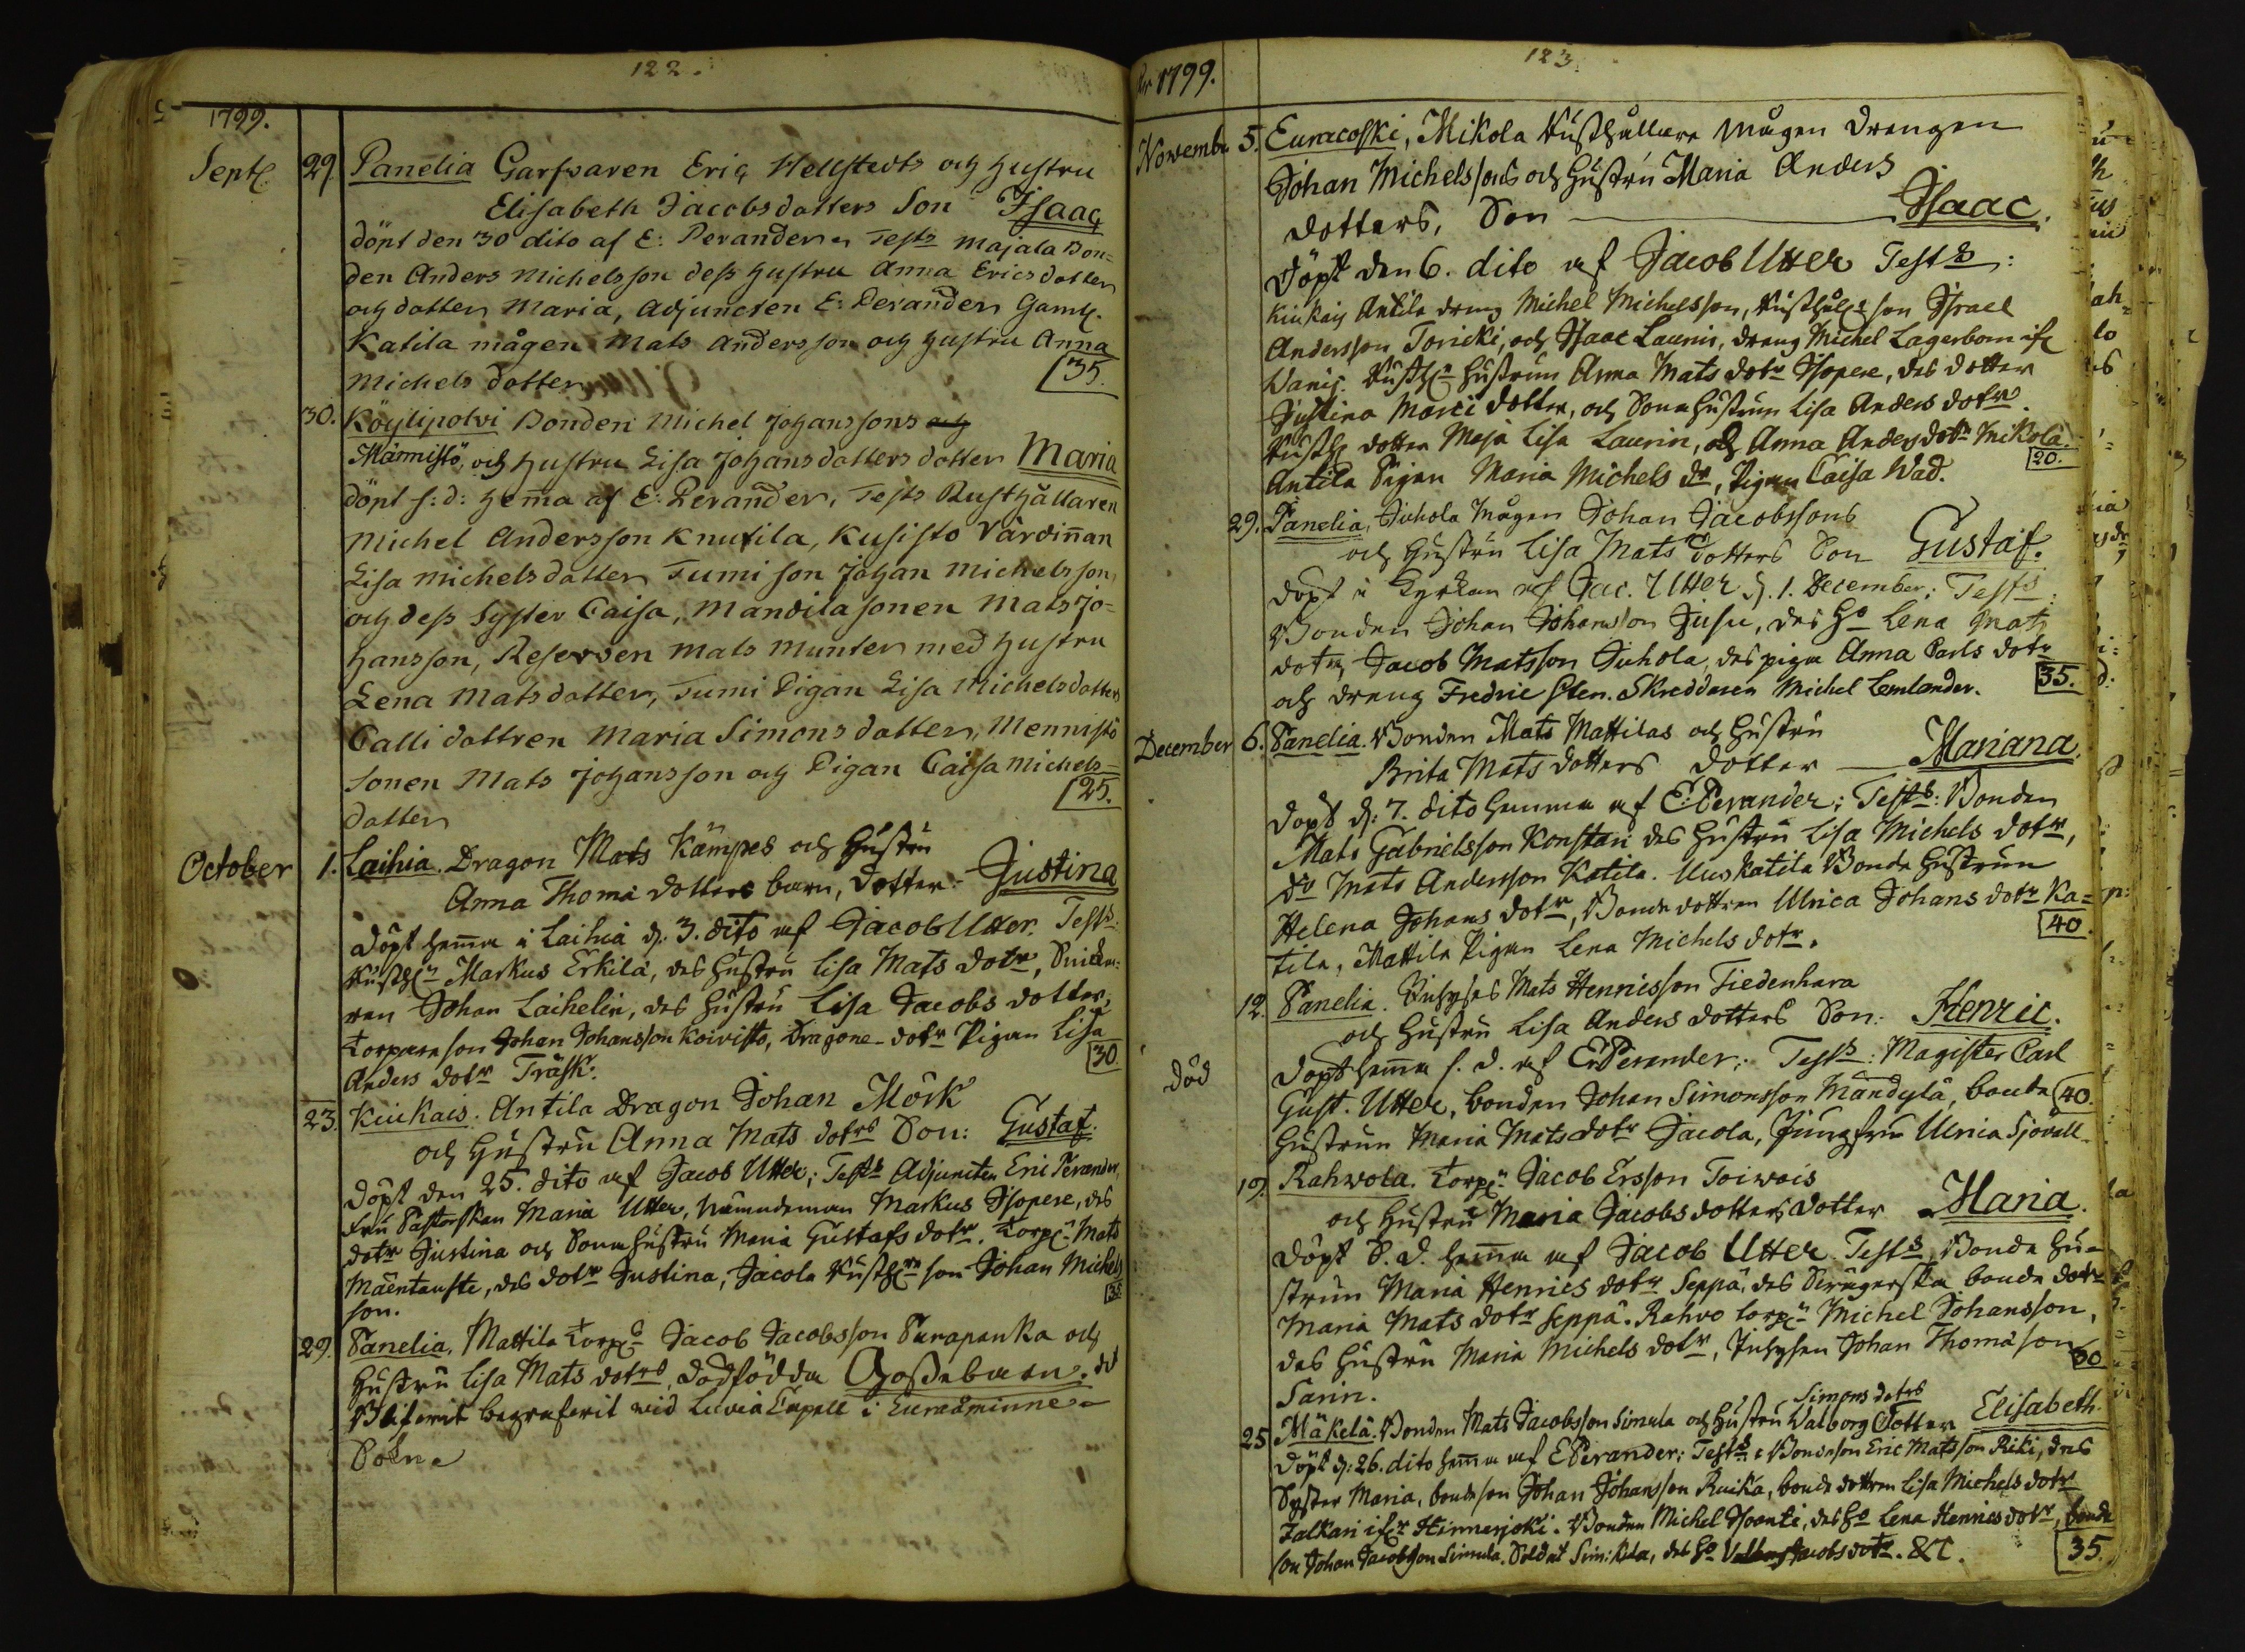 122.
1799.
Sept. 29 Panelia Garfvaren Eric Hellstedts och hustru
Elisabeth Jacobsdotters Son Isaac
döpt den 30 dito af E: Perander. Tests Majala Bon=
den Anders Michelsson dess hustru Anna Ericsdotter
och dotter Maria, Adjuncten E: Perander Gaml.
Katila mågen Mats Andersson och hustru Anna
Michels dotter 35.
30. Köylipolvi Bonden Michel Johanssons och
Männistö, och hustru Lisa Johansdotters dotter Maria
döpt s: d: hemma af E: Perander, Tests Rusthållaren
Michel Andersson Knutila, Kusisto Värdinnan
Lisa Michelsdotter Tumi son Johan Michelsson,
och dess Syster Caisa, Mandila sonen Mats Jo=
hansson, Reserven Mats Munter med hustru
Lena Matsdotter, Tumi Pigan Lisa Michelsdotter
Calli dottren Maria Simonsdotter, Mennistö
Sonen Mats Johansson och Pigan Caisa Michels=
dotter 25.
October 1. Laihia. Dragon Mats Kämpes och Hustru
Anna Thomæ dotters barn, dotter: Justina
döpt hemma i Laihia d. 3. dito af Jacob Utter. Tests:
Rusth:n Markus Erkilä, des Hustru Lisa Mats dotr,
ren Johan Laihelin, des Hustru Lisa Jacobs dotter,
Torpare son Johan Johansson Koivisto, Dragone-dotr Pigan Lisa
Anders dotr Träsk. 30
23. Kiukais. Antila Dragon Johan Mörk
och Hustru Anna Mats dotrs Son: Gustaf.
döpt den 25. dito af Jacob Utter; Tests Adjuncten Eric Perander,
Fru Pastorskan Maria Utter, Nämndeman Markus Isopere, des
dotr Justina och Sonahustru Maria Gustafs dotr. Torp:n Mats
Mäentauste, des dotr Justina, Jacola Rusth:rn son Johan Michels
son. 35
29. Panelia. Mattila Torp:s Jacob Jacobsson Parapanka och
Hustru Lisa Mats dotrs, dödfödda Gossebarn.
Blifvit begrafvit vid Luvia Capell i Euraåminne
Sokn
123.
1799.
Novemb. 5. Euracoski, Mikola Rusthållare mågen Drengen
Johan Michelssons och Hustru Maria Anders
dotters, Son Isaac.
Döpt den 6. dito af Jacob Utter Tests:
Kiukais Antila dreng Michel Michelsson, Rusthål:e son Israel
Andersson Toricki, och Isaac Laurin, dreng Michel Lagerbom ifr
Rusth:n hustrun Anna Mats dotr Isopere, des dotter
Justina Marci dotter, och Sonahustrun Lisa Anders dotr
Rusth: dotter Maja Lisa Laurin, och Anna Anders dotr Mikola.
Antila Pigan Maria Michels dr, Pigan Caisa Wad. 20.
29. Panelia, Juhola Mågen Johan Jacobssons
och Hustru Lisa Mats dotters Son Gustaf.
döpt i Kyrkan af Jac. Utter d. 1. December; Tests:
Bonden Johan Johansson Jusu, des Ho Lena Mats
dotr, Jacob Matsson Juhola, des piga Anna Carls dotr
och dreng Fredric Sten. Skreddaren Michel Lemlander. 35.
December 6. Panelia. Bonden Mats Mattilas och Hustru
Brita Mats dotters dotter Mariana.
döpt d: 7. dito hemma af E: Perander; Tests: Bonden
Mats Gabrielsson Konstari des Hustru Lisa Michels dotr,
do Mats Andersson Katila. Uuskatila Bonde hustrun
Helena Johans dotr, Bonde dottren Ulrica Johans dotr Ka=
tila, Mattila Pigan Lena Michels dotr. 40
död 12. Panelia. Inhyses Mats Henricsson Tiedenhara
och Hustru Lisa Anders dotters Son: Henric.
döpt hemma s. d. af E: Perander; Tests: Magister Carl
Gust. Utter, bonden Johan Simonsson Mandyla, bonde 40.
Hustrun Maria Mats dotr Jacola, Jungfru Ulrica Sjövall
19. Rahvola. Torp:n Jacob Ersson Toiwois
och Hustru Maria Jacobs dotters dotter Maria.
Döpt S. d. hemma af Jacob Utter Tests Bonde Hu=
strun Maria Henrics dotr Seppä, des bonde dotr
Maria Mats dotr Seppä. Rahvo torp:n Michel Johansson,
des Hustru Maria Michels dotr, Inhysen Johan Thomæson
Sarin. 30
25 Mäkelä. Bonden Mats Jacobsson Simula och Hustru Valborg Simons dotrs Dotter Elisabeth.
Döpt d: 26. dito hemma af E Perander; Tests: Bondeson Eric Matsson Riki, des
Syster Maria, bondeson Johan Johansson Ruika, bonde dottren Lisa Michels dotr
Jalkari ifr Hinnerjoki. Bonden Michel Isoanti, des Ho Lena Henrics dotr, bonde
son Johan Jacobsson Simula. Soldat Sim: Kila, des Ho Jacobs dotr. &c. 35.